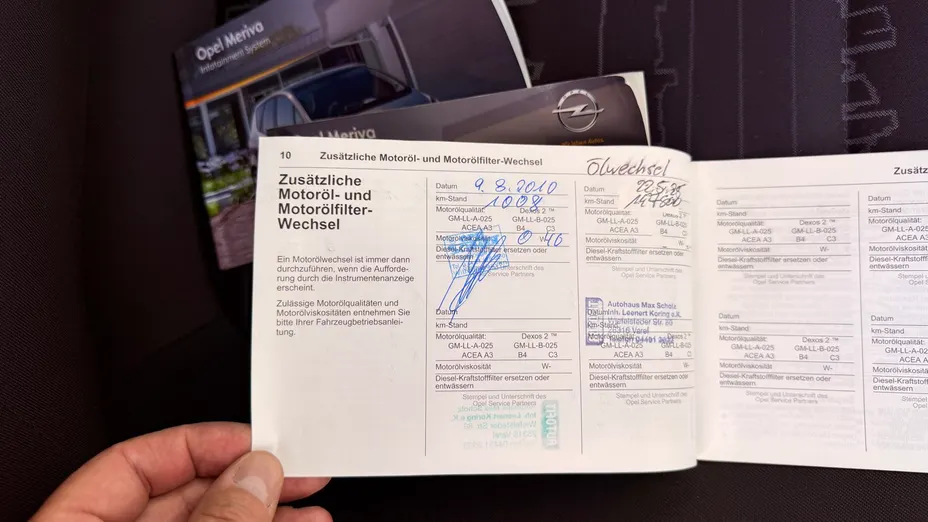 Opel Meriva
Infotainment System
OPEL
Opel Meriva
10 Zusätzliche Motoröl- und Motorölfilter-Wechsel
Zusätzliche
Motoröl- und
Motorölfilter-
Wechsel
Ein Motorölwechsel ist immer dann
durchzuführen, wenn die Aufforde-
rung durch die Instrumentenanzeige
erscheint.
Zulässige Motorölqualitäten und
Motorölviskositäten entnehmen Sie
bitte Ihrer Fahrzeugbetriebsanlei-
tung.
Datum 9.8.2010
km-Stand 1008
Motorölqualität: Dexos 2 ™
GM-LL-A-025 GM-LL-B-025
ACEA A3 B4 C3
Motorölviskosität 0 W- 40
Diesel-Kraftstofffilter ersetzen oder
entwässern
Stempel und Unterschrift des
Opel Service Partners
Datum
km-Stand
Motorölqualität: Dexos 2 ™
GM-LL-A-025 GM-LL-B-025
ACEA A3 B4 C3
Motorölviskosität W-
Diesel-Kraftstofffilter ersetzen oder
entwässern
Stempel und Unterschrift des
Opel Service Partners
Ölwechsel
Datum
km-Stand
Motorölqualität: Dexos 2
GM-LL-A-025 GM-LL-B-025
ACEA A3 B4 C
Motorölviskosität W-
Diesel-Kraftstofffilter ersetzen oder
entwässern
Stempel und Unterschrift des
Opel Service Partners
Autohaus Max Scholz
Inh. Leenert Koring e.K.
26316 Varel
Datum
km-Stand
Motorölqualität: Dexos 2 ™
GM-LL-A-025 GM-LL-B-025
ACEA A3 B4 C3
Motorölviskosität W-
Diesel-Kraftstofffilter ersetzen oder
entwässern
Stempel und Unterschrift des
Opel Service Partners
Datum
km-Stand
Motorölqualität: Dexos 2 ™
GM-LL-A-025 GM-LL-B-025
ACEA A3 B4 C3
Motorölviskosität W-
Diesel-Kraftstofffilter ersetzen oder
entwässern
Stempel und Unterschrift des
Opel Service Partners
Datum
km-Stand
Motorölqualität: Dexos 2 ™
GM-LL-A-025 GM-LL-B-025
ACEA A3 B4 C3
Motorölviskosität W-
Diesel-Kraftstofffilter ersetzen oder
entwässern
Stempel und Unterschrift des
Opel Service Partners
Zusätz
Datum
km-Stand
Motorölqualität
GM-LL-A-02
ACEA A
Motorölviskosi
Diesel-Kraftsto
entwässern
Stempel
Opel S
Datum
km-Stand
Motorölqualität
GM-LL-A-02
ACEA A
Motorölviskosit
Diesel-Kraftsto
entwässern
Stempel
Opel